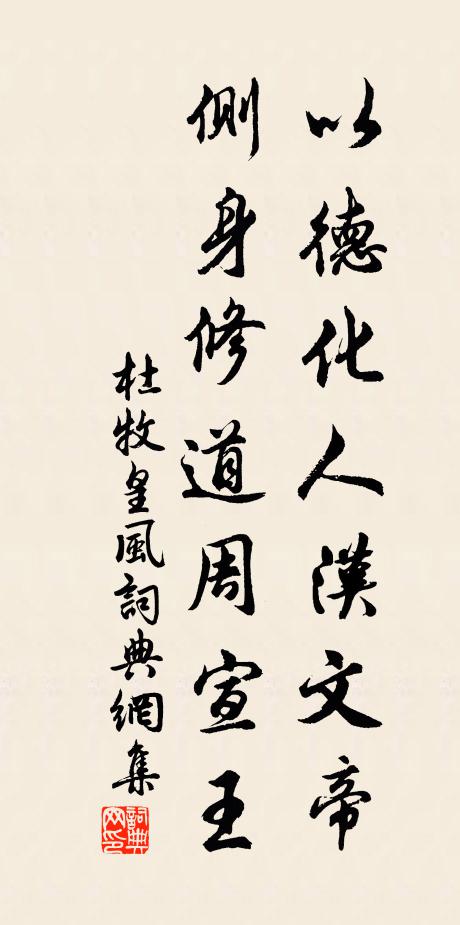 以德化人漢文帝
側身修道周宣王
杜牧皇風詞典網集
詞典網印